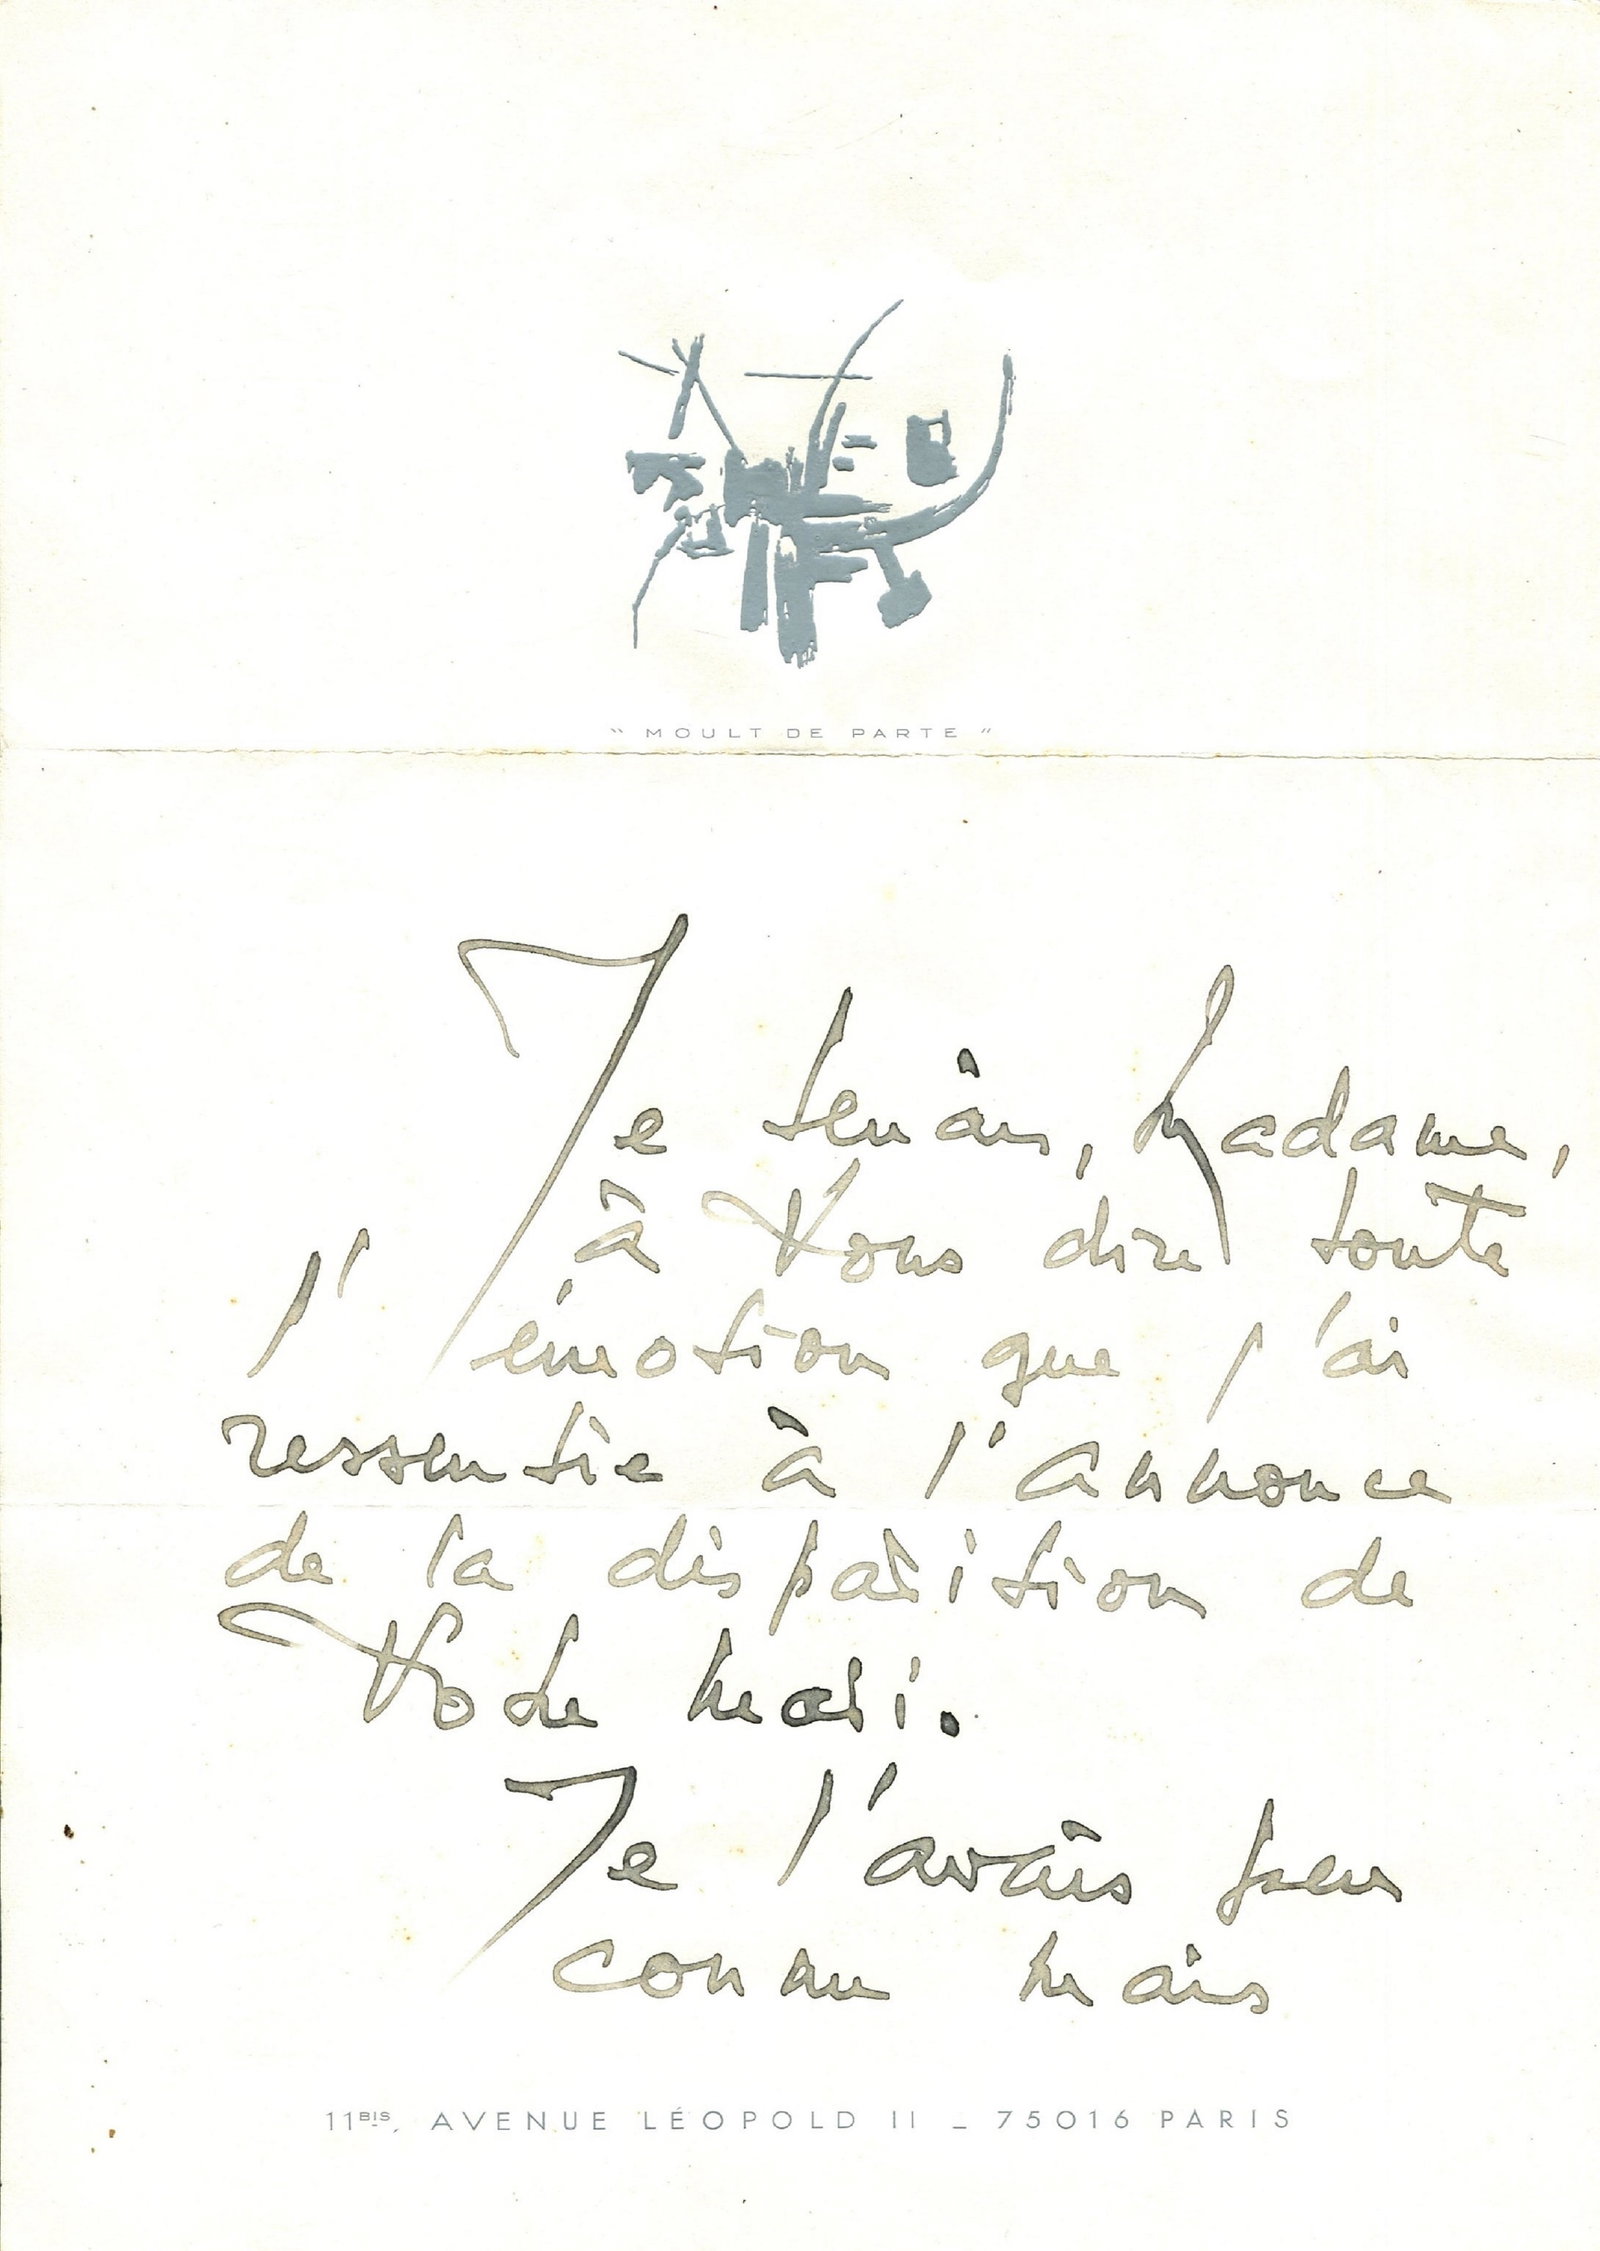 " MOULT DE PARTE "
Je tenais, Madame,
à Vous dire toute
l'émotion que j'ai
ressentie à l'annonce
de la disparition de
Votre mari.
Je l'avais peu
connu mais
11BIS, AVENUE LÉOPOLD II _ 75016 PARIS